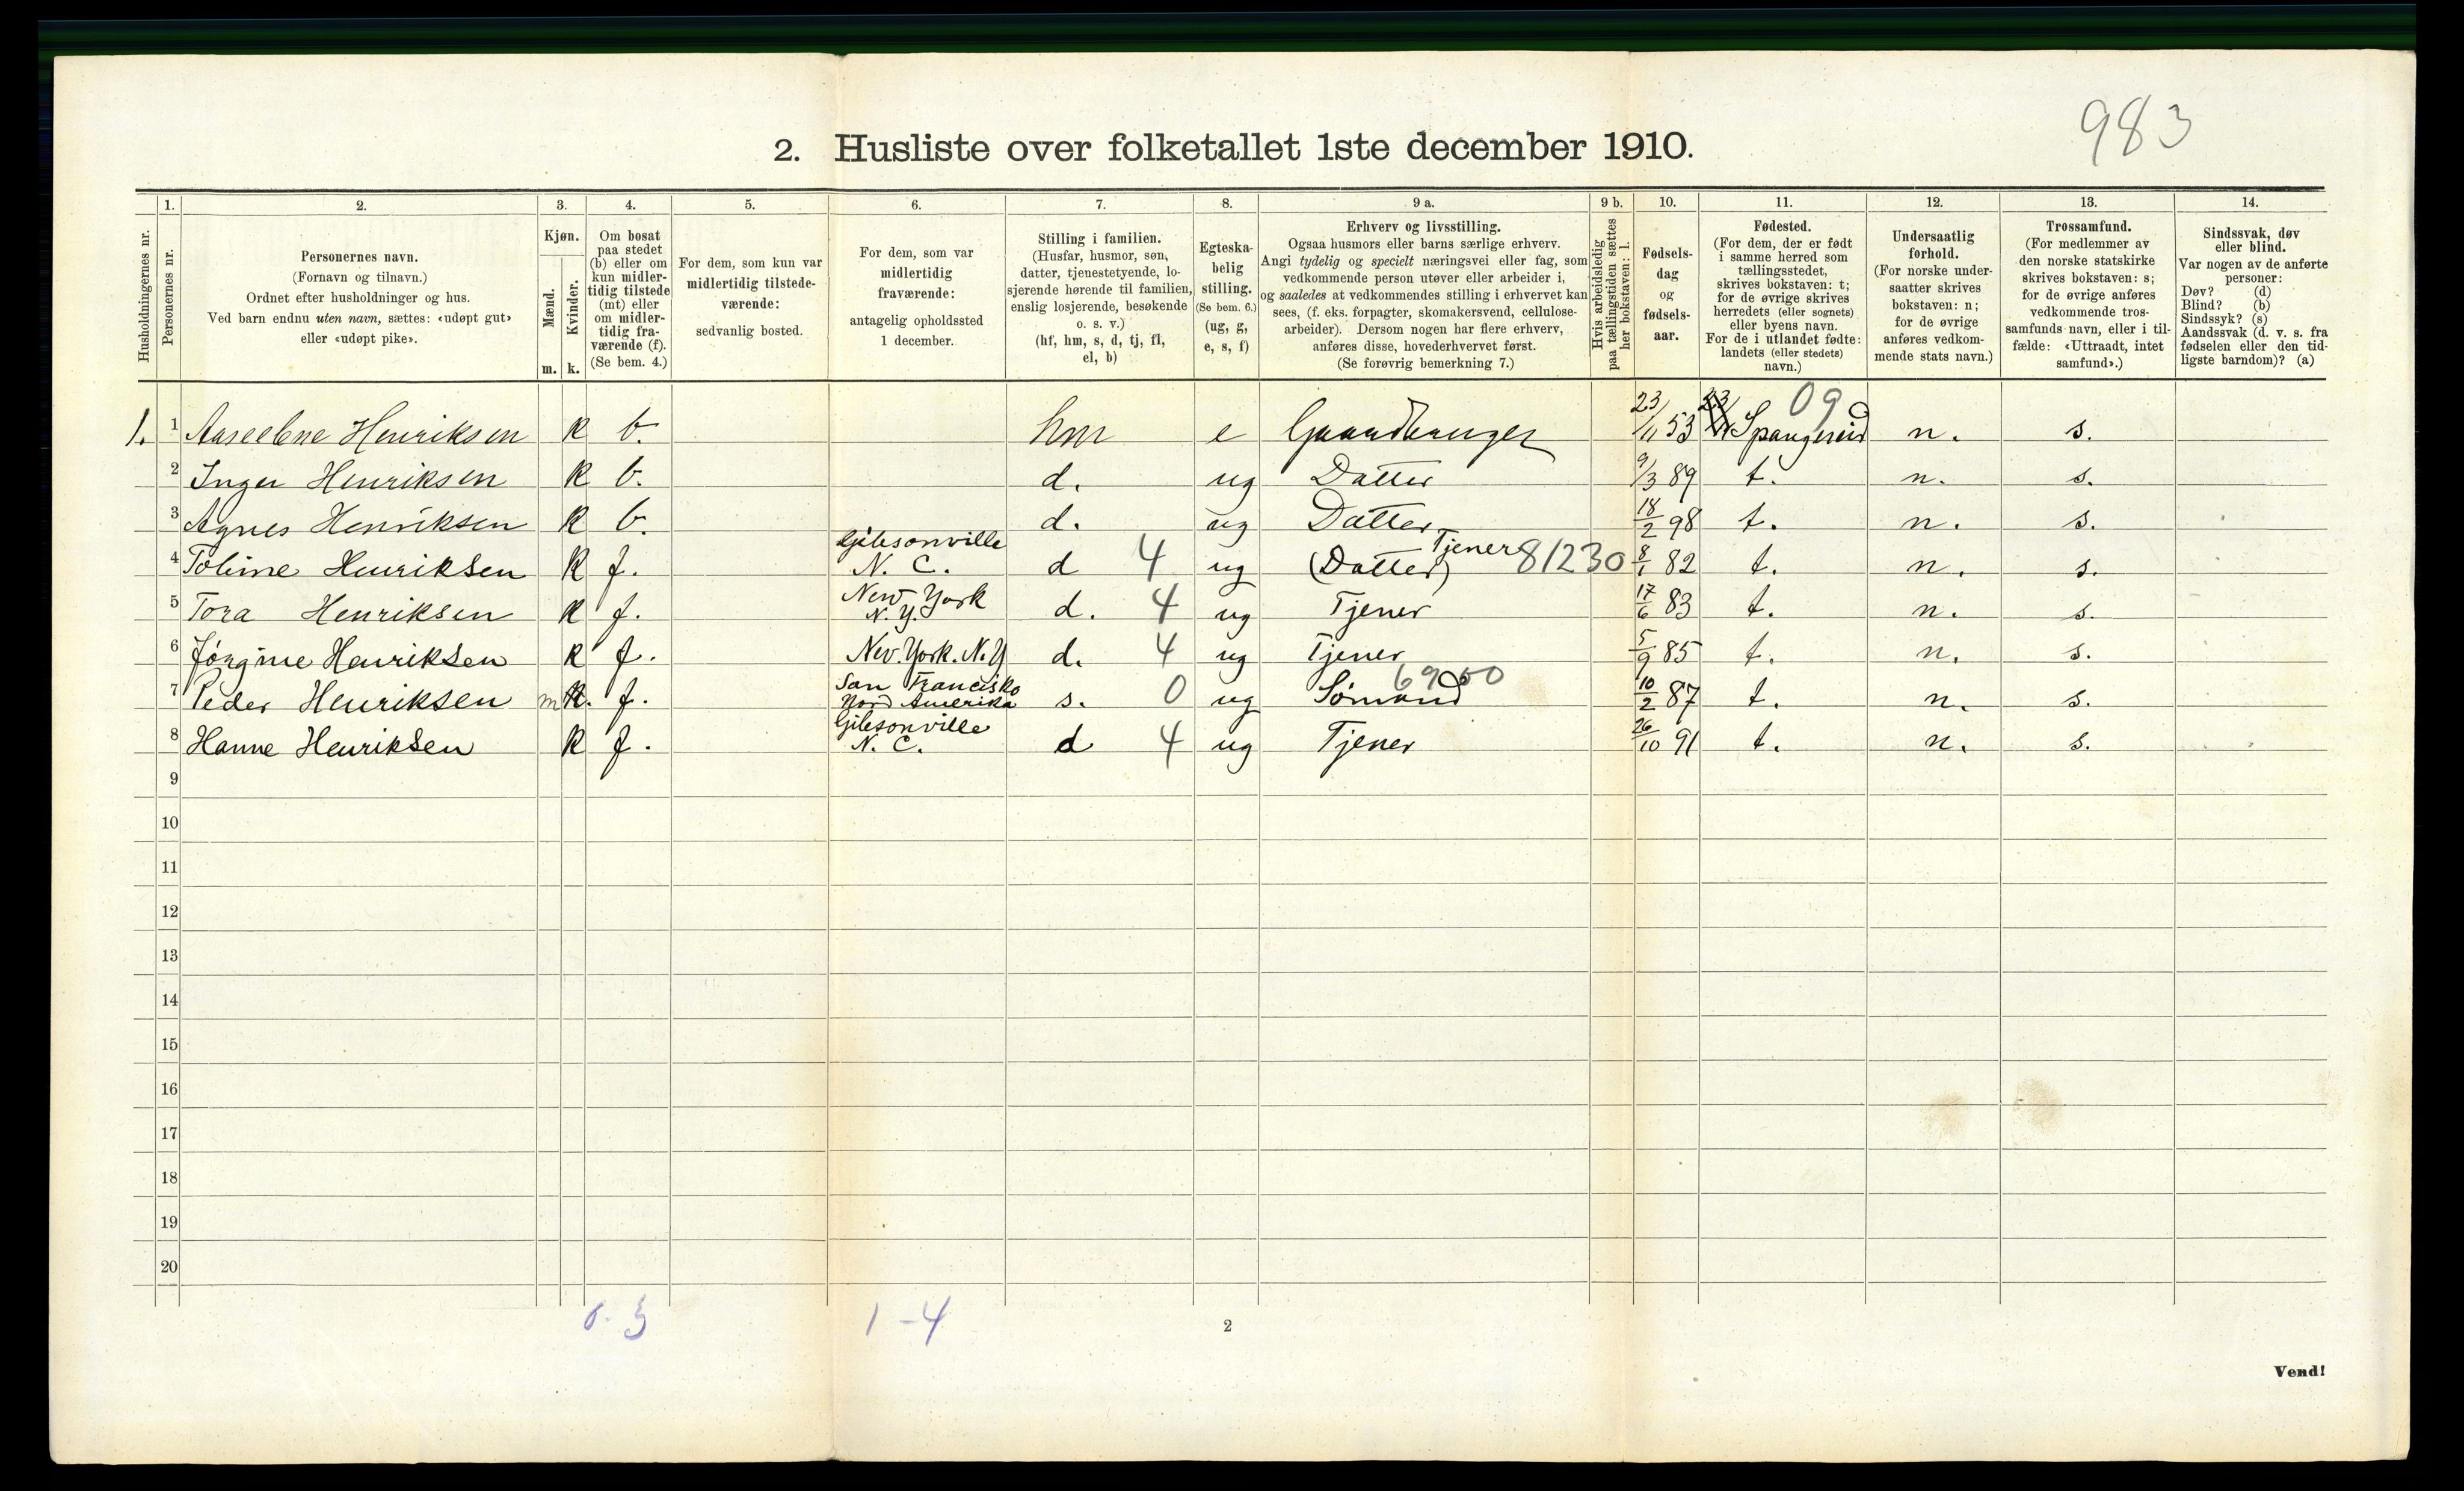 983
2. Husliste over folketallet 1ste december 1910.
Husholdningernes nr.
1.
Personernes nr.
2.
Personernes navn.
(Fornavn og tilnavn.)
Ordnet efter husholdninger og hus.
Ved barn endnu uten navn, sættes: «udøpt gut»
eller «udøpt pike».
3.
Kjøn.
Mænd.
Kvinder.
m. k.
4.
Om bosat
paa stedet
(b) eller om
kun midler-
tidig tilstede
(mt) eller
om midler-
tidig fra-
værende (f).
(Se bem. 4.)
5.
For dem, som kun var
midlertidig tilstede-
værende:
sedvanlig bosted.
6.
For dem, som var
midlertidig
fraværende:
antagelig opholdssted
1 december.
7.
Stilling i familien.
(Husfar, husmor, søn,
datter, tjenestetyende, lo-
sjerende hørende til familien,
enslig losjerende, besøkende
o. s. v.)
(hf, hm, s, d, tj, fl,
el, b)
8.
Egteska-
belig
stilling.
(Se bem. 6.)
(ug, g,
e, s, f)
9 a.
Erhverv og livsstilling.
Ogsaa husmors eller barns særlige erhverv.
Angi tydelig og specielt næringsvei eller fag, som
vedkommende person utøver eller arbeider i,
og saaledes at vedkommendes stilling i erhvervet kan
sees, (f. eks. forpagter, skomakersvend, cellulose-
arbeider). Dersom nogen har flere erhverv,
anføres disse, hovederhvervet først.
(Se forøvrig bemerkning 7.)
9 b.
Hvis arbeidsledig
paa tællingstiden sættes
her bokstaven: l.
10.
Fødsels-
dag
og
fødsels-
aar.
11.
Fødested.
(For dem, der er født
i samme herred som
tællingsstedet,
skrives bokstaven: t;
for de øvrige skrives
herredets (eller sognets)
eller byens navn.
For de i utlandet fødte:
landets (eller stedets)
navn.)
12.
Undersaatlig
forhold.
(For norske under-
saatter skrives
bokstaven: n;
for de øvrige
anføres vedkom-
mende stats navn.)
13.
Trossamfund.
(For medlemmer av
den norske statskirke
skrives bokstaven: s;
for de øvrige anføres
vedkommende tros-
samfunds navn, eller i til-
fælde: «Uttraadt, intet
samfund».)
14.
Sindssvak, døv
eller blind.
Var nogen av de anførte
personer:
Døv? (d)
Blind? (b)
Sindssyk? (s)
Aandssvak (d. v. s. fra
fødselen eller den tid-
ligste barndom)? (a)
1. 1 Henriksen k b. hm e Gaardbruger 23/11 53 Spangereid 09 n. s.
2 Inger Henriksen k b. d. ug Datter 9/3 89 t. n. s.
3 Agnes Henriksen k b. d. ug Datter 18/2 98 t. n. s.
4 Toline Henriksen k f. Gibsonville N. C. d 4 ug (Datter) Tjener 81230 8/1 82 t. n. s.
5 Tora Henriksen k f. New York N. Y. d. 4 ug Tjener 17/6 83 t. n. s.
6 Jørgine Henriksen k f. Nev. York. N. Y d. 4 ug Tjener 5/9 85 t. n. s.
7 Peder Henriksen m k. f. San Francisko Nord Amerika s. 0 ug Sømand 10/2 87 t. n. s.
8 Hanne Henriksen k f. Gibsonville N. C. d 4 ug Tjener 26/10 91 t. n. s.
9
10
11
12
13
14
15
16
17
18
19
20
0. 3
1 - 4
2
Vend!